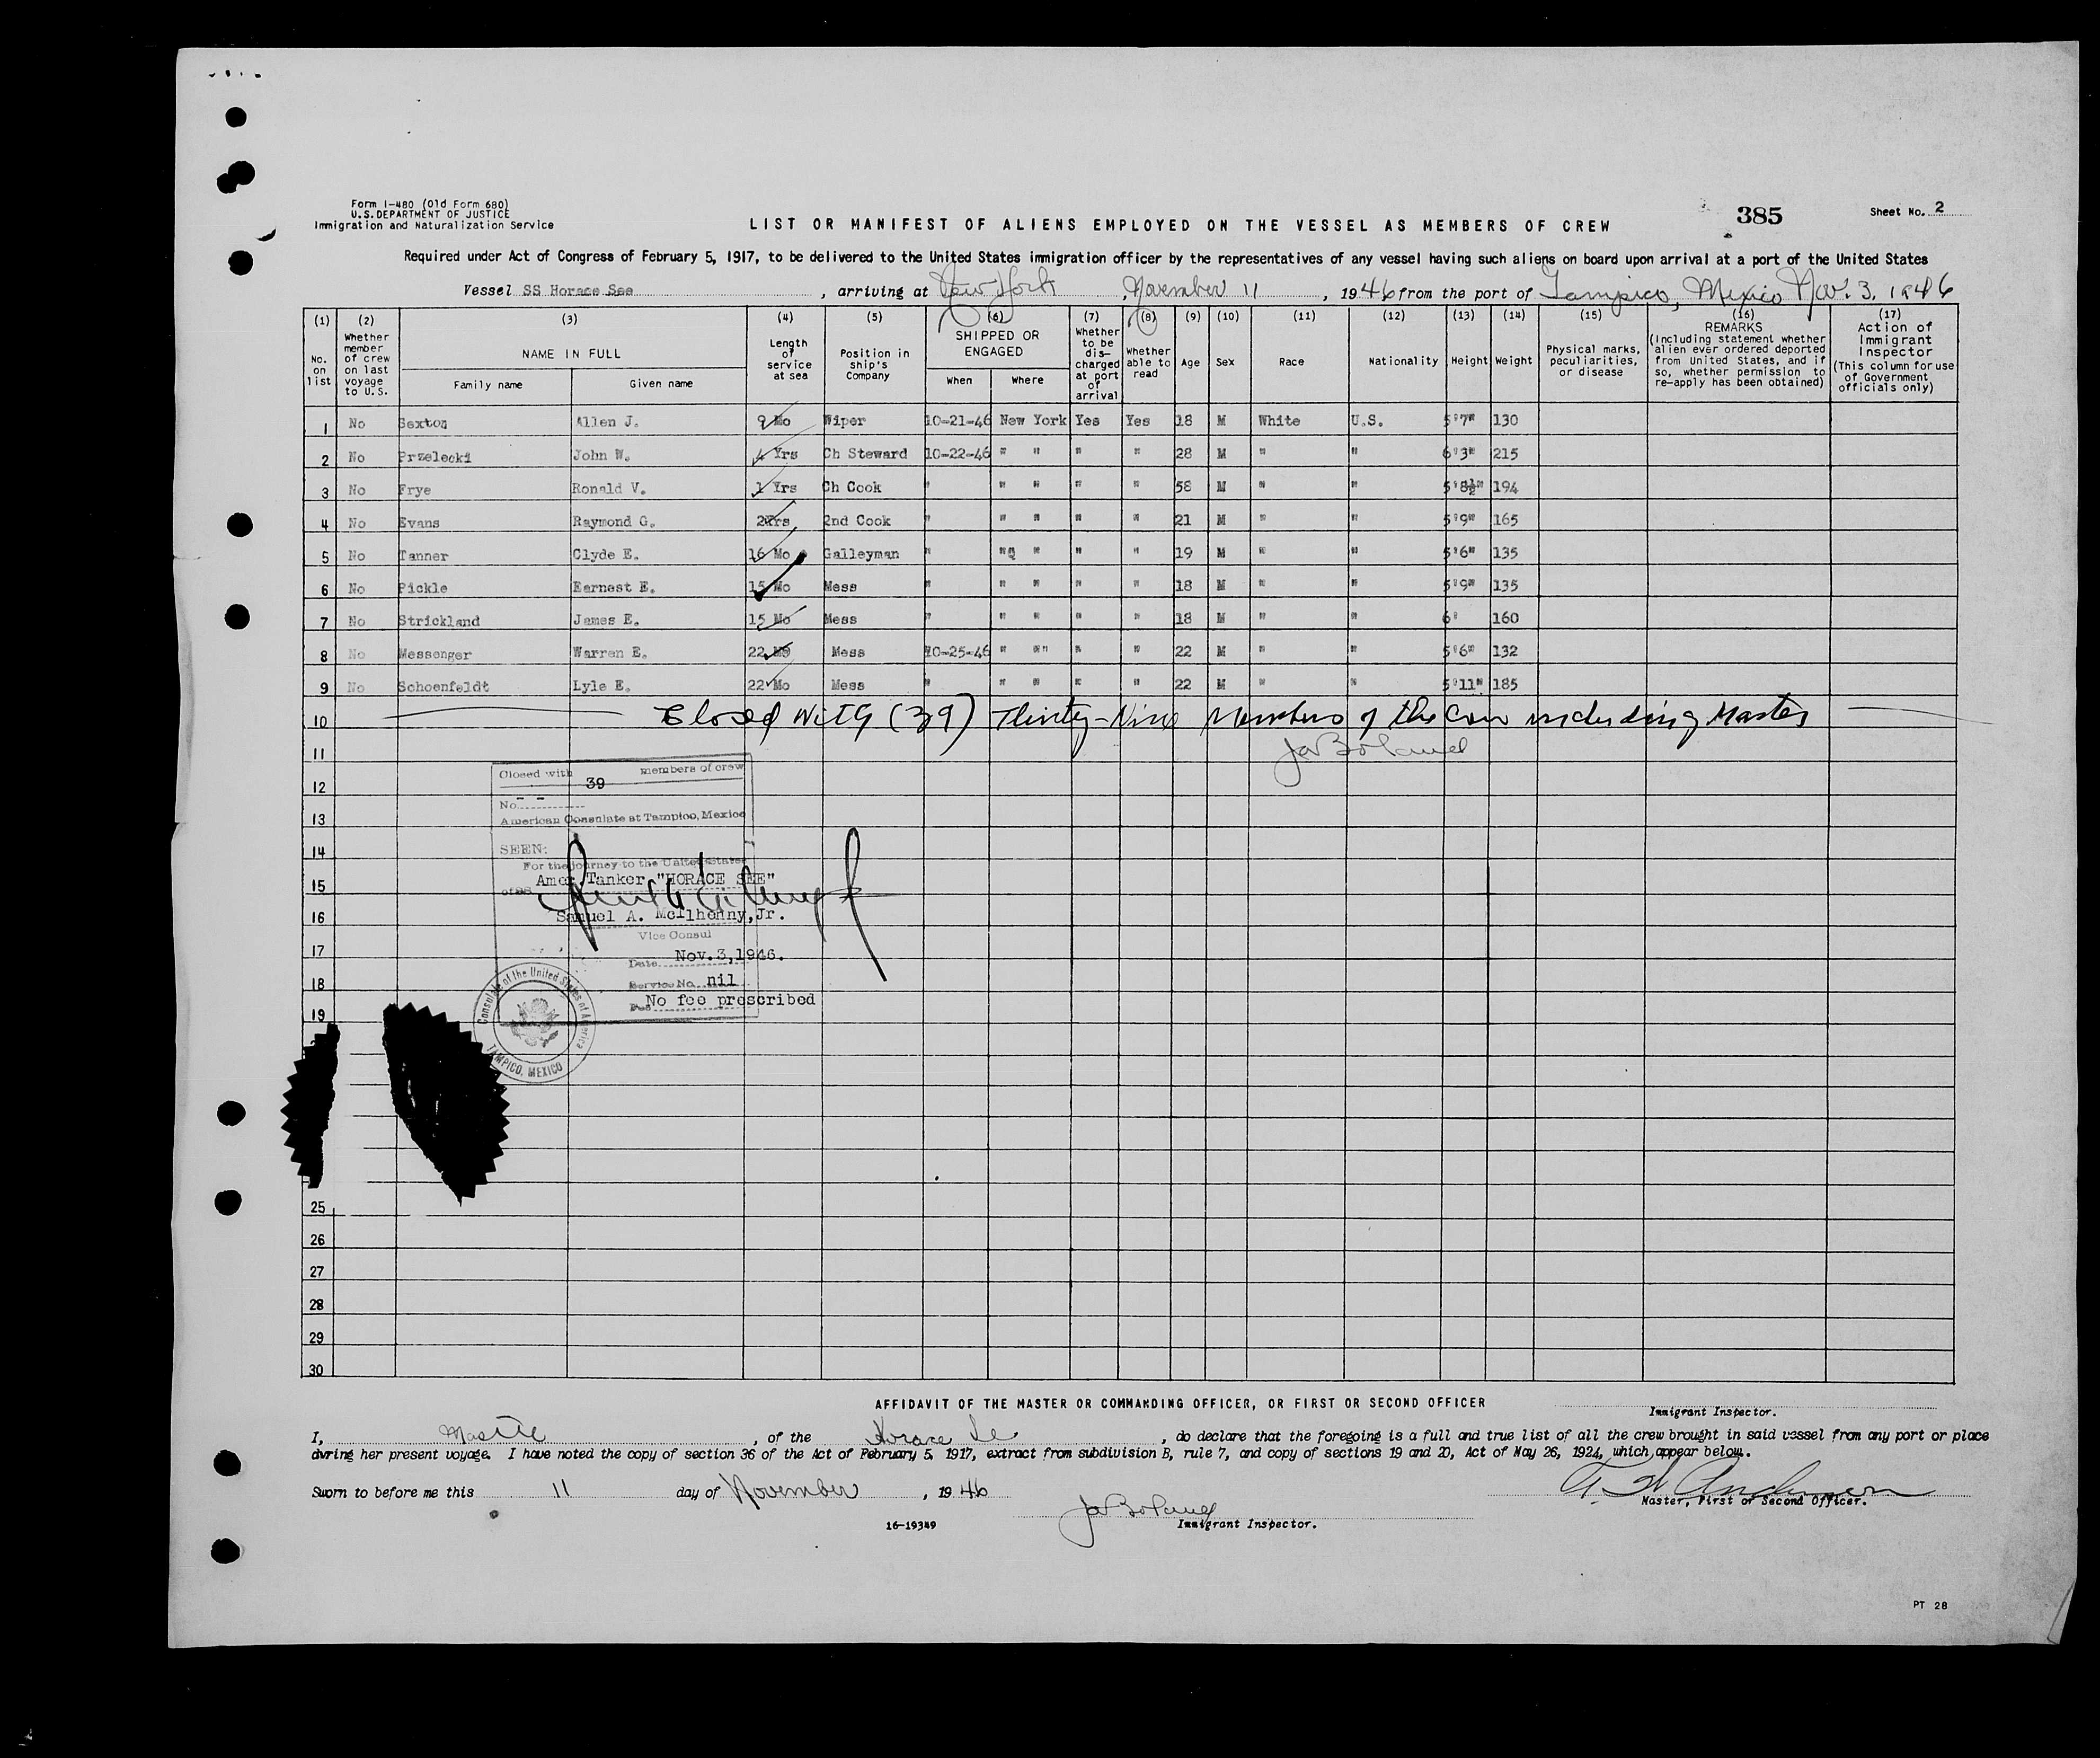 Form I-480 (Old Form 680)
U.S. DEPARTMENT OF JUSTICE
Immigration and Naturalization Service
LIST OR MANIFEST OF ALIENS EMPLOYED ON THE VESSEL AS MEMBERS OF CREW
385
Sheet No. 2
Required under Act of Congress of February 5, 1917, to be delivered to the United States immigration officer by the representatives of any vessel having such aliens on board upon arrival at a port of the United States
Vessel SS Horace See, arriving at New York, November 11, 1946 from the port of Tampico, Mexico Nov. 3, 1946
(1) No. on list
(2) Whether member of crew on last voyage to U.S.
(3) NAME IN FULL Family name Given name
(4) Length of service at sea
(5) Position in ship's Company
(6) SHIPPED OR ENGAGED When Where
(7) Whether to be discharged at port of arrival
(8) Whether able to read
(9) Age
(10) Sex
(11) Race
(12) Nationality
(13) Height
(14) Weight
(15) Physical marks, peculiarities, or disease
(16) REMARKS (Including statement whether alien ever ordered deported from United States, and if so, whether permission to re-apply has been obtained)
(17) Action of Immigrant Inspector (This column for use of Government officials only)
1 No Sexton Allen J. 9 Mo Wiper 10-21-46 New York Yes Yes 18 M White U.S. 5'7" 130
2 No Przelecki John W. 4 Yrs Ch Steward 10-22-46 " " " " 28 M " " 6'3" 215
3 No Frye Ronald V. 1 Yrs Ch Cook " " " " " 58 M " " 5'8½" 194
4 No Evans Raymond G. 2 Yrs 2nd Cook " " " " " 21 M " " 5'9" 165
5 No Tanner Clyde E. 16 Mo Galleyman " " " " " 19 M " " 5'6" 135
6 No Pickle Earnest E. 15 Mo Mess " " " " " 18 M " " 5'9" 135
7 No Strickland James E. 15 Mo Mess " " " " " 18 M " " 6' 160
8 No Messenger Warren E. 22 Mo Mess 10-25-46 " " " " 22 M " " 5'6" 132
9 No Schoenfeldt Lyle E. 22 Mo Mess " " " " " 22 M " " 5'11" 185
10 Closed with (39) Thirty-Nine Members of the Crew including Master
11
12
13
14
15
16
17
18
19
25
26
27
28
29
30
Closed with 39 members of crew
No. - -
American Consulate at Tampico, Mexico
SEEN:
For the journey to the United States
of SS Amer Tanker "HORACE SEE"
Samuel A. McIlhenny, Jr.
Vice Consul
Date Nov. 3, 1946.
Service No. nil
Fee No fee prescribed
Consulate of the United States of America
TAMPICO, MEXICO
AFFIDAVIT OF THE MASTER OR COMMANDING OFFICER, OR FIRST OR SECOND OFFICER
Immigrant Inspector.
I, Master, of the Horace See, do declare that the foregoing is a full and true list of all the crew brought in said vessel from any port or place
during her present voyage. I have noted the copy of section 36 of the Act of February 5, 1917, extract from subdivision B, rule 7, and copy of sections 19 and 20, Act of May 26, 1924, which appear below.
Sworn to before me this 11 day of November, 1946
Anderson
Master, First or Second Officer.
16-19349
Immigrant Inspector.
PT 28